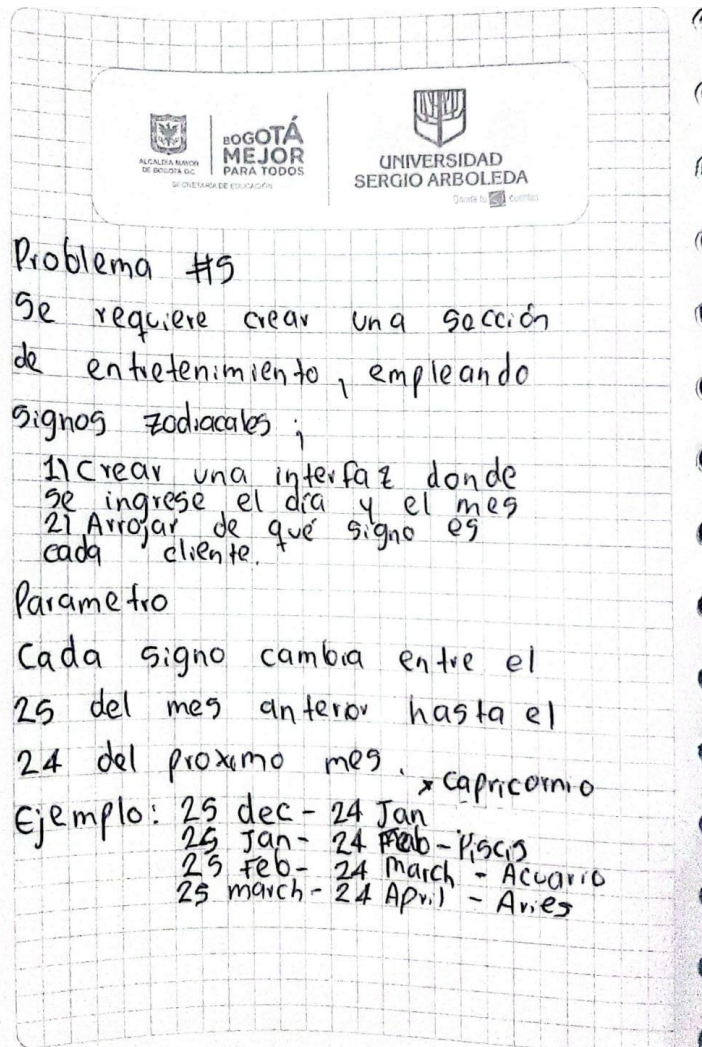 ALCALDÍA MAYOR
DE BOGOTÁ D.C.
SECRETARÍA DE EDUCACIÓN
BOGOTÁ
MEJOR
PARA TODOS
UNIVERSIDAD
SERGIO ARBOLEDA
Problema #5
Se requiere crear una sección
de entretenimiento, empleando
signos zodiacales;
1) Crear una interfaz donde
se ingrese el día y el mes
2) Arrojar de qué signo es
cada cliente.
Parametro
Cada signo cambia entre el
25 del mes anterior hasta el
24 del proximo mes.
* Capricornio
Ejemplo: 25 dec - 24 Jan
25 Jan - 24 Feb - Piscis
25 Feb - 24 March - Acuario
25 march - 24 April - Aries